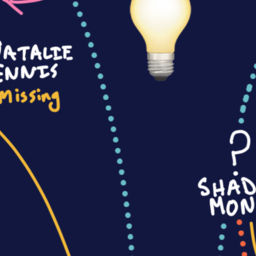 NATALIE
ENNIS
Missing
?
SHAD
MON